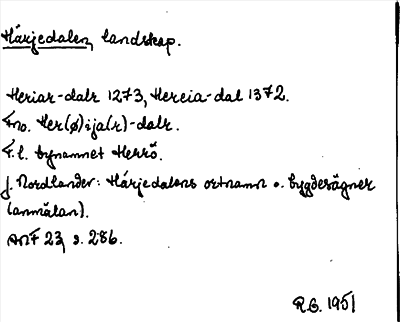 Härjedalen, landskap.
Heriar-dalr 1273, Hereia-dal 1372.
Fno. Her(ø)ija(r)-dalr.
F.l. bynamnet Herrö.
J. Nordlander: Härjedalens ortnamn o. bygdesägner
(anmälan).
ANF 23, s. 286.
R.G. 1951